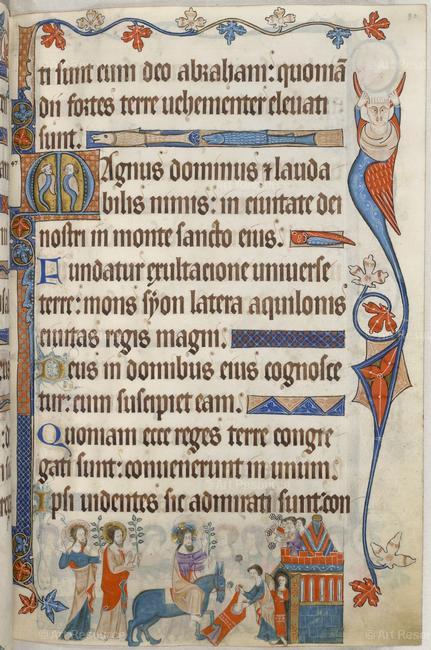 ti sunt cum deo abraham: quoniā
dii fortes terre uehementer eleuati
sunt.
Magnus dominus ⁊ lauda
bilis nimis: in ciuitate dei
nostri in monte sancto eius.
Fundatur exultacione uniuerse
terre: mons syon latera aquilonis
ciuitas regis magni.
Deus in domibus eius cognosce
tur: cum suscipiet eam.
Quoniam ecce reges terre congre
gati sunt: conuenerunt in unum.
Ipsi uidentes sic admirati sunt: con
© Art Resource
© Art Resource